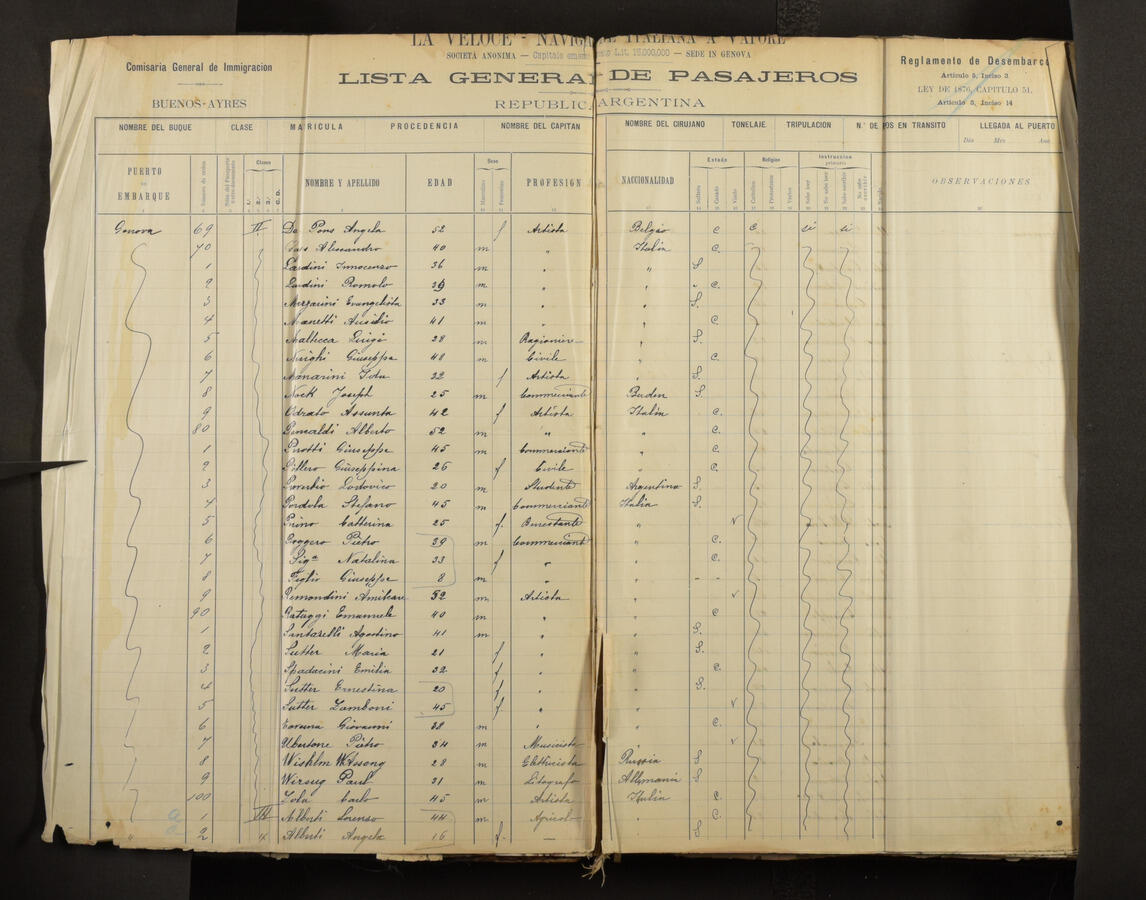 LA VELOCE - NAVIGAZIONE ITALIANA A VAPORE
SOCIETÀ ANONIMA — Capitale Lit. 15.000.000 — SEDE IN GENOVA
Comisaria General de Immigracion
BUENOS-AYRES
LISTA GENERAL DE PASAJEROS
REPUBLICA ARGENTINA
Reglamento de Desembarco
Artículo 5, Inciso 3
LEY DE 1876, CAPITULO 51,
Artículo 5, Inciso 14
NOMBRE DEL BUQUE CLASE MATRICULA PROCEDENCIA NOMBRE DEL CAPITAN NOMBRE DEL CIRUJANO TONELAJE TRIPULACION N.º DE EN TRANSITO LLEGADA AL PUERTO
Dia Mes Ano
PUERTO DE EMBARQUE Clases NOMBRE Y APELLIDO EDAD Sexo Masculino Femenino PROFESION NACCIONALIDAD Estado Soltero Casado Viudo Religion Catholico Protestante Varios Instruccion primaria Sabe leer No sabe leer Sabe escribir No sabe escribir OBSERVACIONES
Genova 69 II De Pons Angela 52 f Artista Belgio c c si si
70 Alessandro 40 m " Italia C.
1 Lardini Innocenzo 36 m " " S.
2 Lardini Romolo 39 m " " C.
3 Mezzarini Evangelista 33 m " " S.
4 Manetti Ausidio 41 m " " C.
5 Maltecca Luigi 28 m Ragioniere " S.
6 Giuseppe 48 m Civile " C.
7 Manarini Ida 32 f Artista " S.
8 Nock Joseph 25 m Commerciante Baden S.
9 Odrato Assunta 42 f Artista Italia C.
80 Alberto 52 m " " C.
1 Giuseppe 45 m Commerciante " C.
2 Pillero Giuseppina 26 f Civile " C.
3 Lodovico 20 m Studente Argentina S.
4 Perdola Stefano 45 m Commerciante Italia S.
5 Primo Catterina 25 f. " V
6 Poggero Pietro 39 m Commerciante " C.
7 Sig.a Natalina 33 f " " C.
8 Figlio Giuseppe 8 m " " - -
9 Remondini Amilcare 52 m Artista " V
90 Rataggi Emanuele 40 m " " C
1 Santarelli Agostino 41 m " " S.
2 Sutter Maria 21 f " " S.
3 Spadacini Emilia 32 f " " C.
4 Sutter Ernestina 20 f " " S.
5 Sutter Zamboni 45 f " " V
6 Giovanni 38 m " " C.
7 Ubertone Pietro 34 m Musicista " V
8 28 m Elettricista Russia S
9 Wirsug Paul 31 m Litografo Allemania S
100 Carlo 45 m Artista Italia C
1 III Alberti Lorenzo 44 m Agricol " C.
" 2 " Alberti Angela 16 f. — S